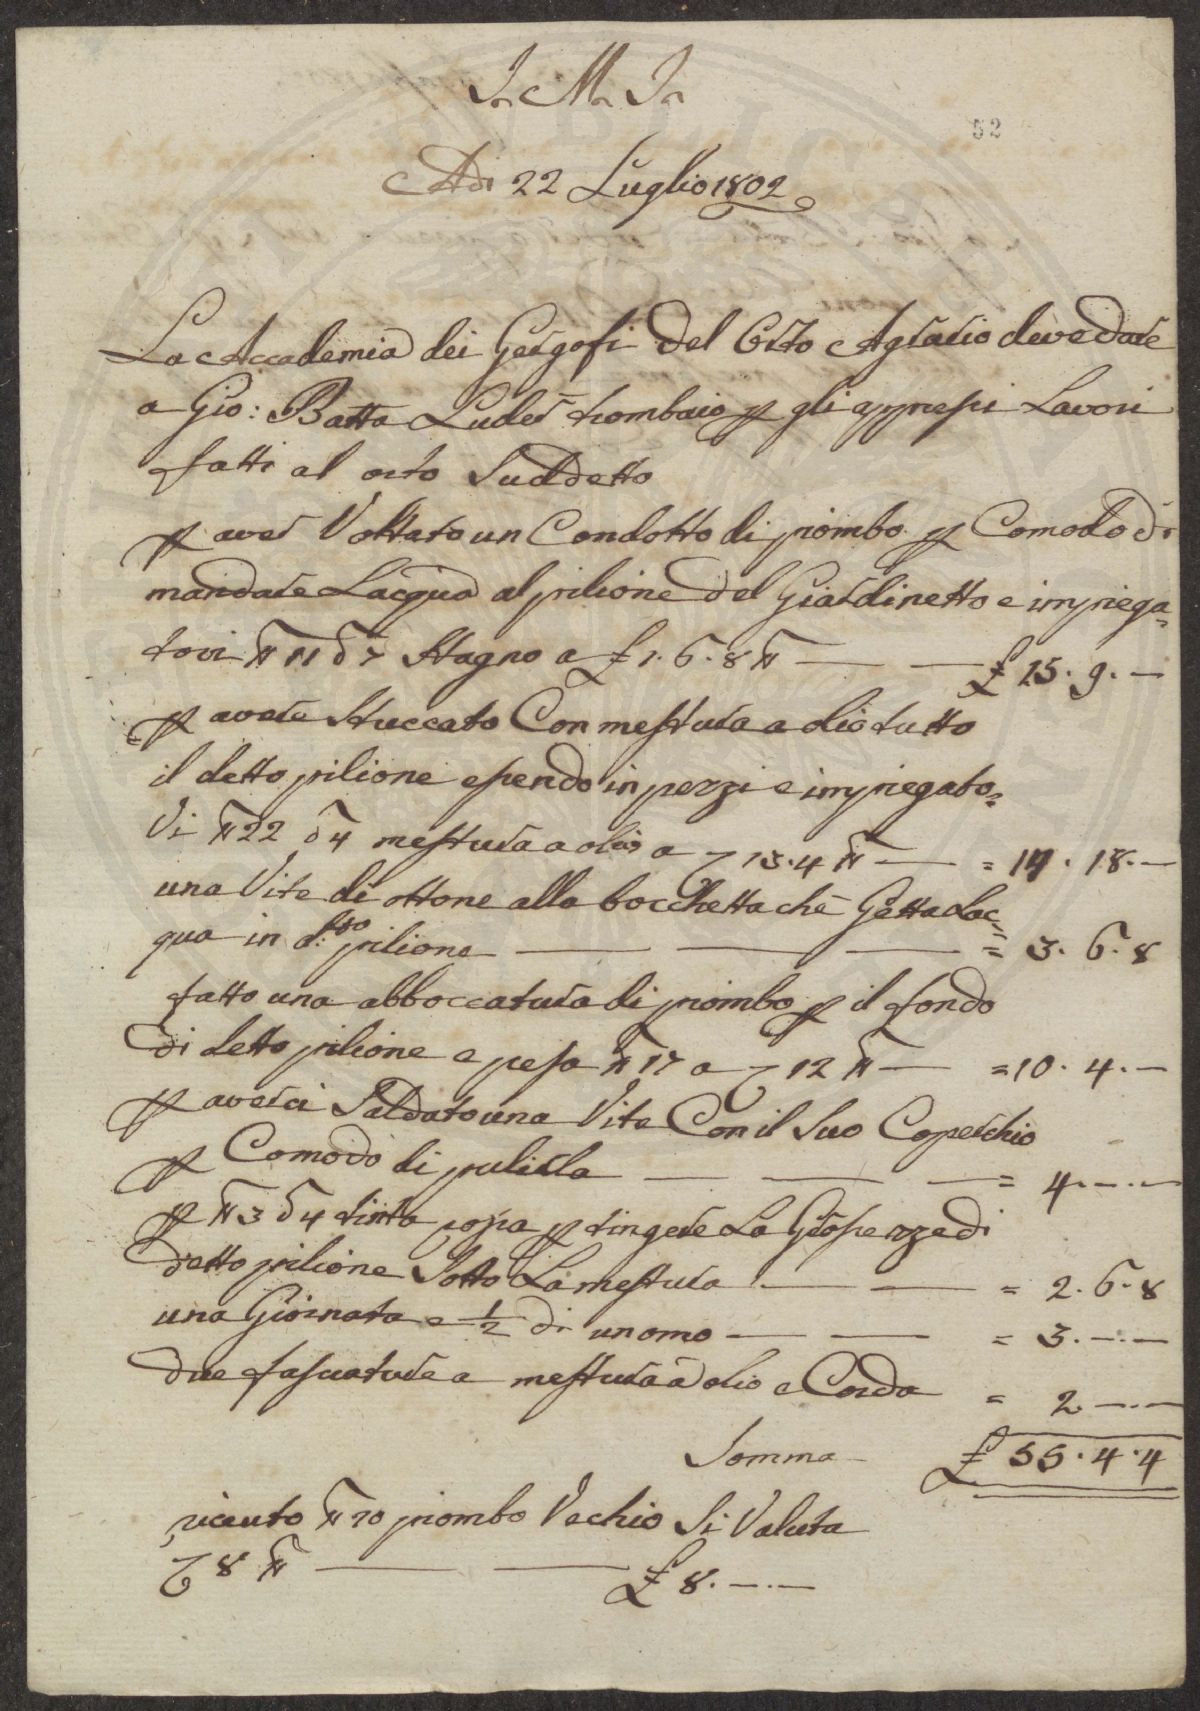 J. M. J.
52
Adi 22 Luglio 1802
La Accademia dei Gergofi del Orto Agrario deve dare
a Gio: Batta Luder trombaio p gli appresi Lavori
fatti al orto Suddetto
p aver Voltato un Condotto di piombo p Comodo di
mandare Lacqua al pilione del Giardinetto e impiega=
tovi ℔ 11 δ 7 Stagno a £ 1. 6. 8 ℔ — — £ 15. 9. —
p avere Stuccato Con mestura a olio tutto
il detto pilione esendo in pezzi e impiegato=
Vi ℔ 22 δ 4 mestura a olio a 13. 4 ℔ — = 14. 18. —
una Vite di ottone alla bocchetta che Getta Lac=
qua in d.tto pilione — — — = 3. 6. 8
fatto una abboccatura di piombo p il fondo
di detto pilione e pesa ℔ 17 a 12 ℔ — = 10. 4. —
p averci Saldato una Vite Con il Suo Coperchio
p Comodo di pulirla — — — = 4. — . —
p ℔ 3 δ 4 tinta p tingere La Grosezza di
detto pilione Sotto La mestura — — = 2. 6. 8
una Giornata e 1/2 di un omo — — = 3. — . —
due fasciature a mestura a olio e Corda = 2. — . —
Somma £ 55. 4. 4
riceuto ℔ 20 piombo Vechio Si Valuta
8 ℔ — — £ 8. — . —